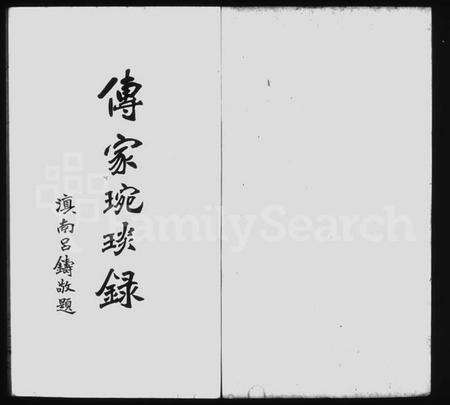 傳家琬琰錄
滇南呂鑄敬題
FamilySearch